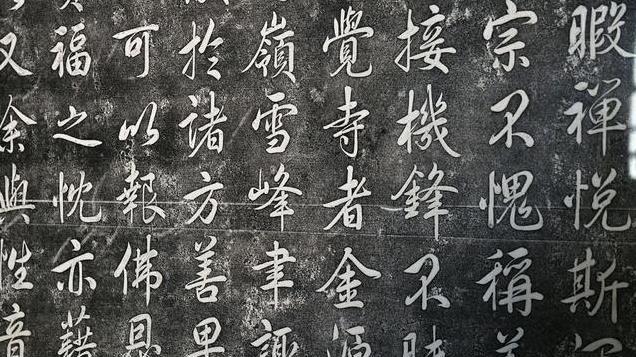 暇禪悅斯
宗不愧稱
接機鋒不
覺寺者金源
嶺雪峰聿諏
於諸方善
可以報佛恩
福之忱亦藉
又余與性音